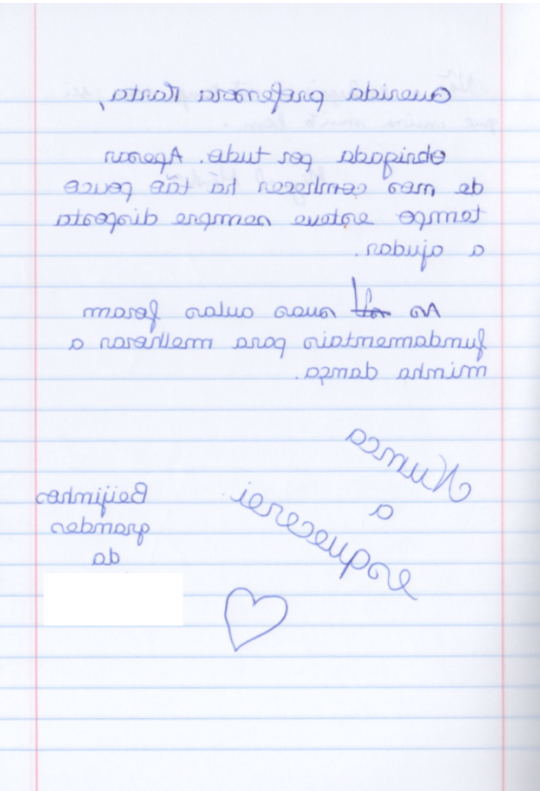 Querida professora Marta,
Obrigada por tudo. Apesar
de nos conhecer há tão pouco
tempo esteve sempre disposta
a ajudar.
As suas aulas foram
fundamentais para melhorar a
minha dança.
Nunca
a
esquecerei
Beijinhos
grandes
da